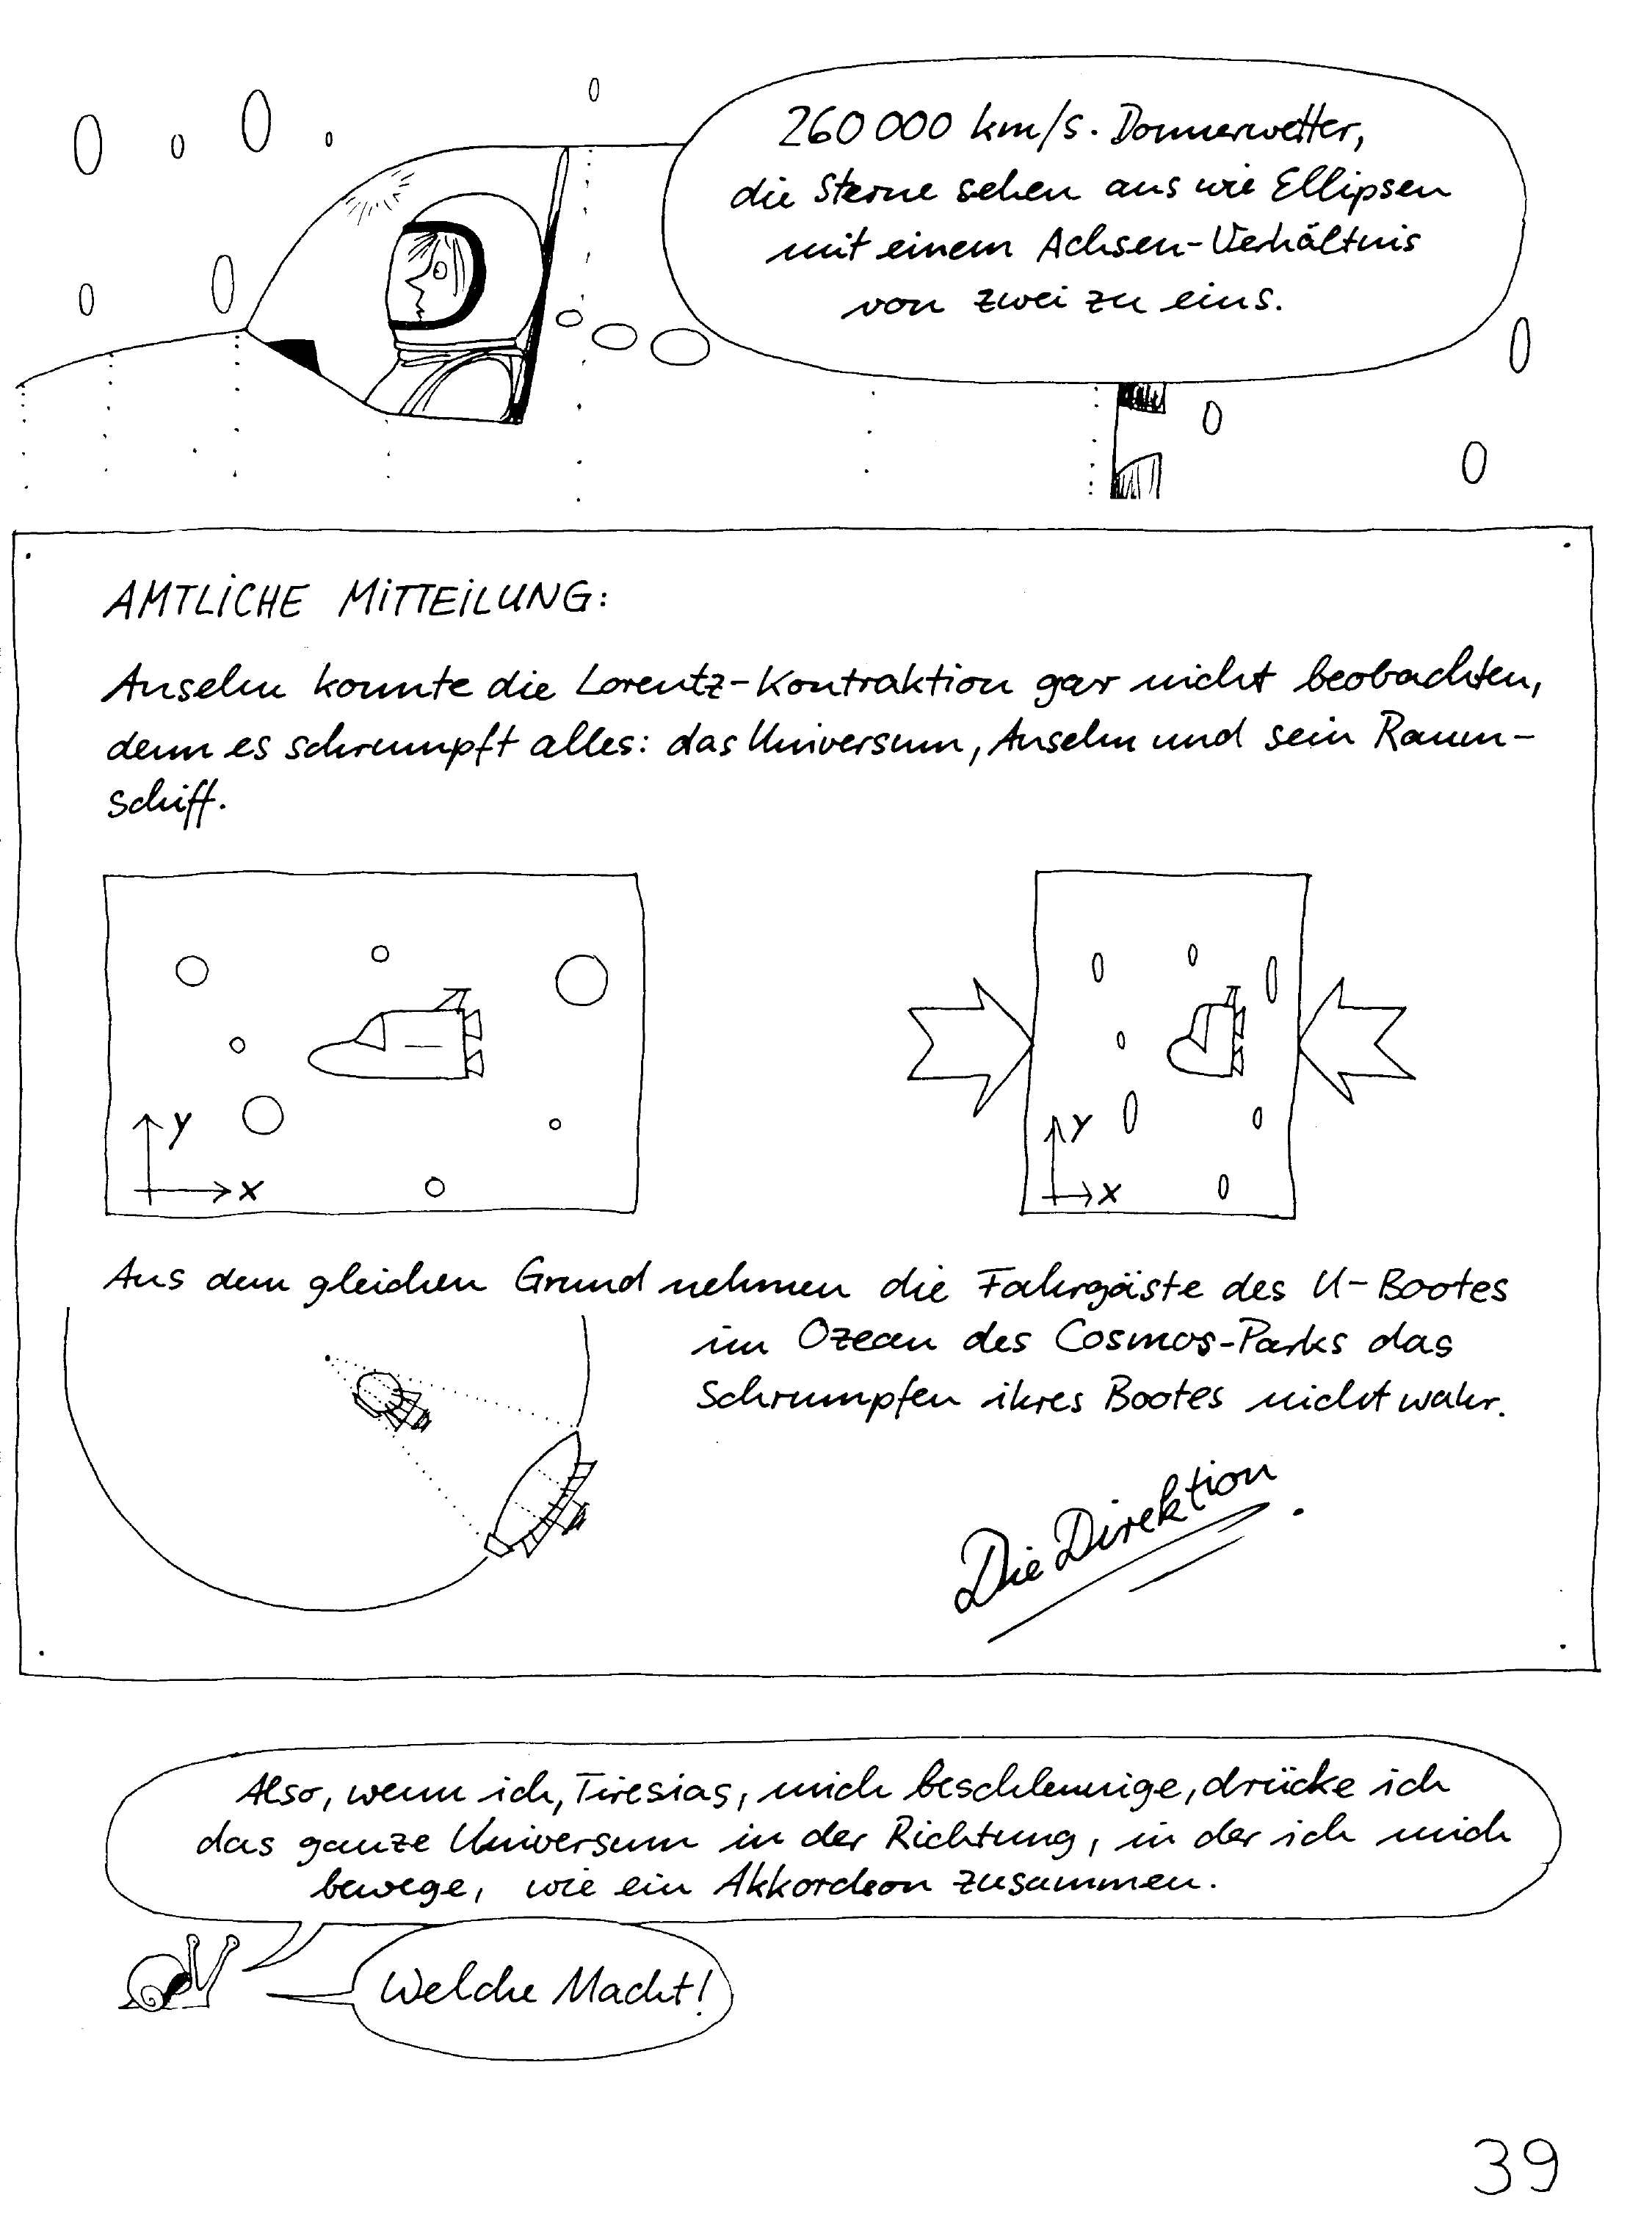 260 000 km/s. Donnerwetter,
die Sterne sehen aus wie Ellipsen
mit einem Achsen-Verhältnis
von zwei zu eins.
AMTLICHE MITTEILUNG:
Anselm konnte die Lorentz-Kontraktion gar nicht beobachten,
denn es schrumpft alles: das Universum, Anselm und sein Raum-
schiff.
y
x
y
x
Aus dem gleichen Grund nehmen die Fahrgäste des U-Bootes
im Ozean des Cosmos-Parks das
Schrumpfen ihres Bootes nicht wahr.
Die Direktion.
Also, wenn ich, Tiresias, mich beschleunige, drücke ich
das ganze Universum in der Richtung, in der ich mich
bewege, wie ein Akkordeon zusammen.
Welche Macht!
39